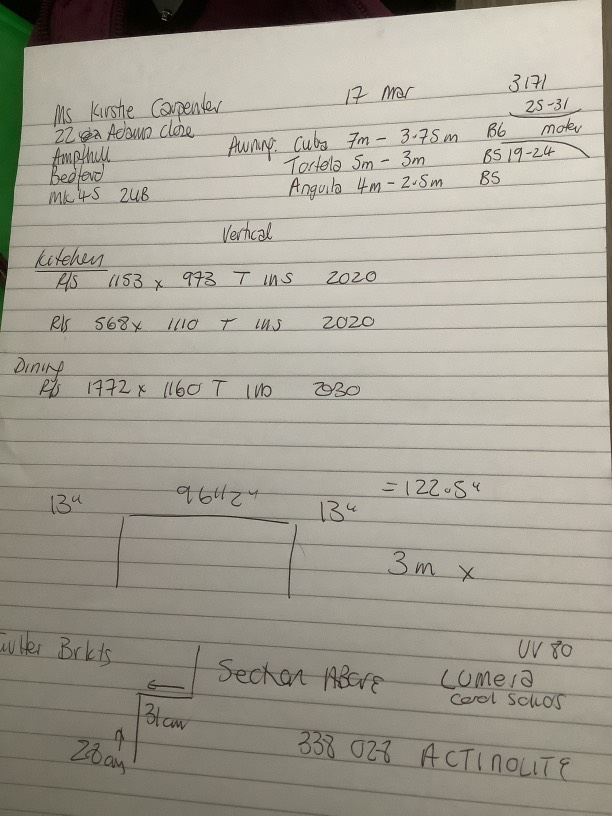 17 Mar
3171
25-31
Ms Kirstie Carpenter
22 Adams close
Ampthill
Bedford
MK45 2UB
Awning: Cuba 7m - 3.75m B6 motor
Tortola 5m - 3m B5 19-24
Anguila 4m - 2.5m B5
Vertical
Kitchen
R/S 1153 x 973 T INS 2020
R/S 568 x 1110 T INS 2020
Dining
R/S 1772 x 1160 T 2030
13" 96 1/2" 13" = 122.5"
3m x
Brkts
Section ABOVE
UV 80
LUMERA
31cm
28cm
338 028 ACTINOLITE